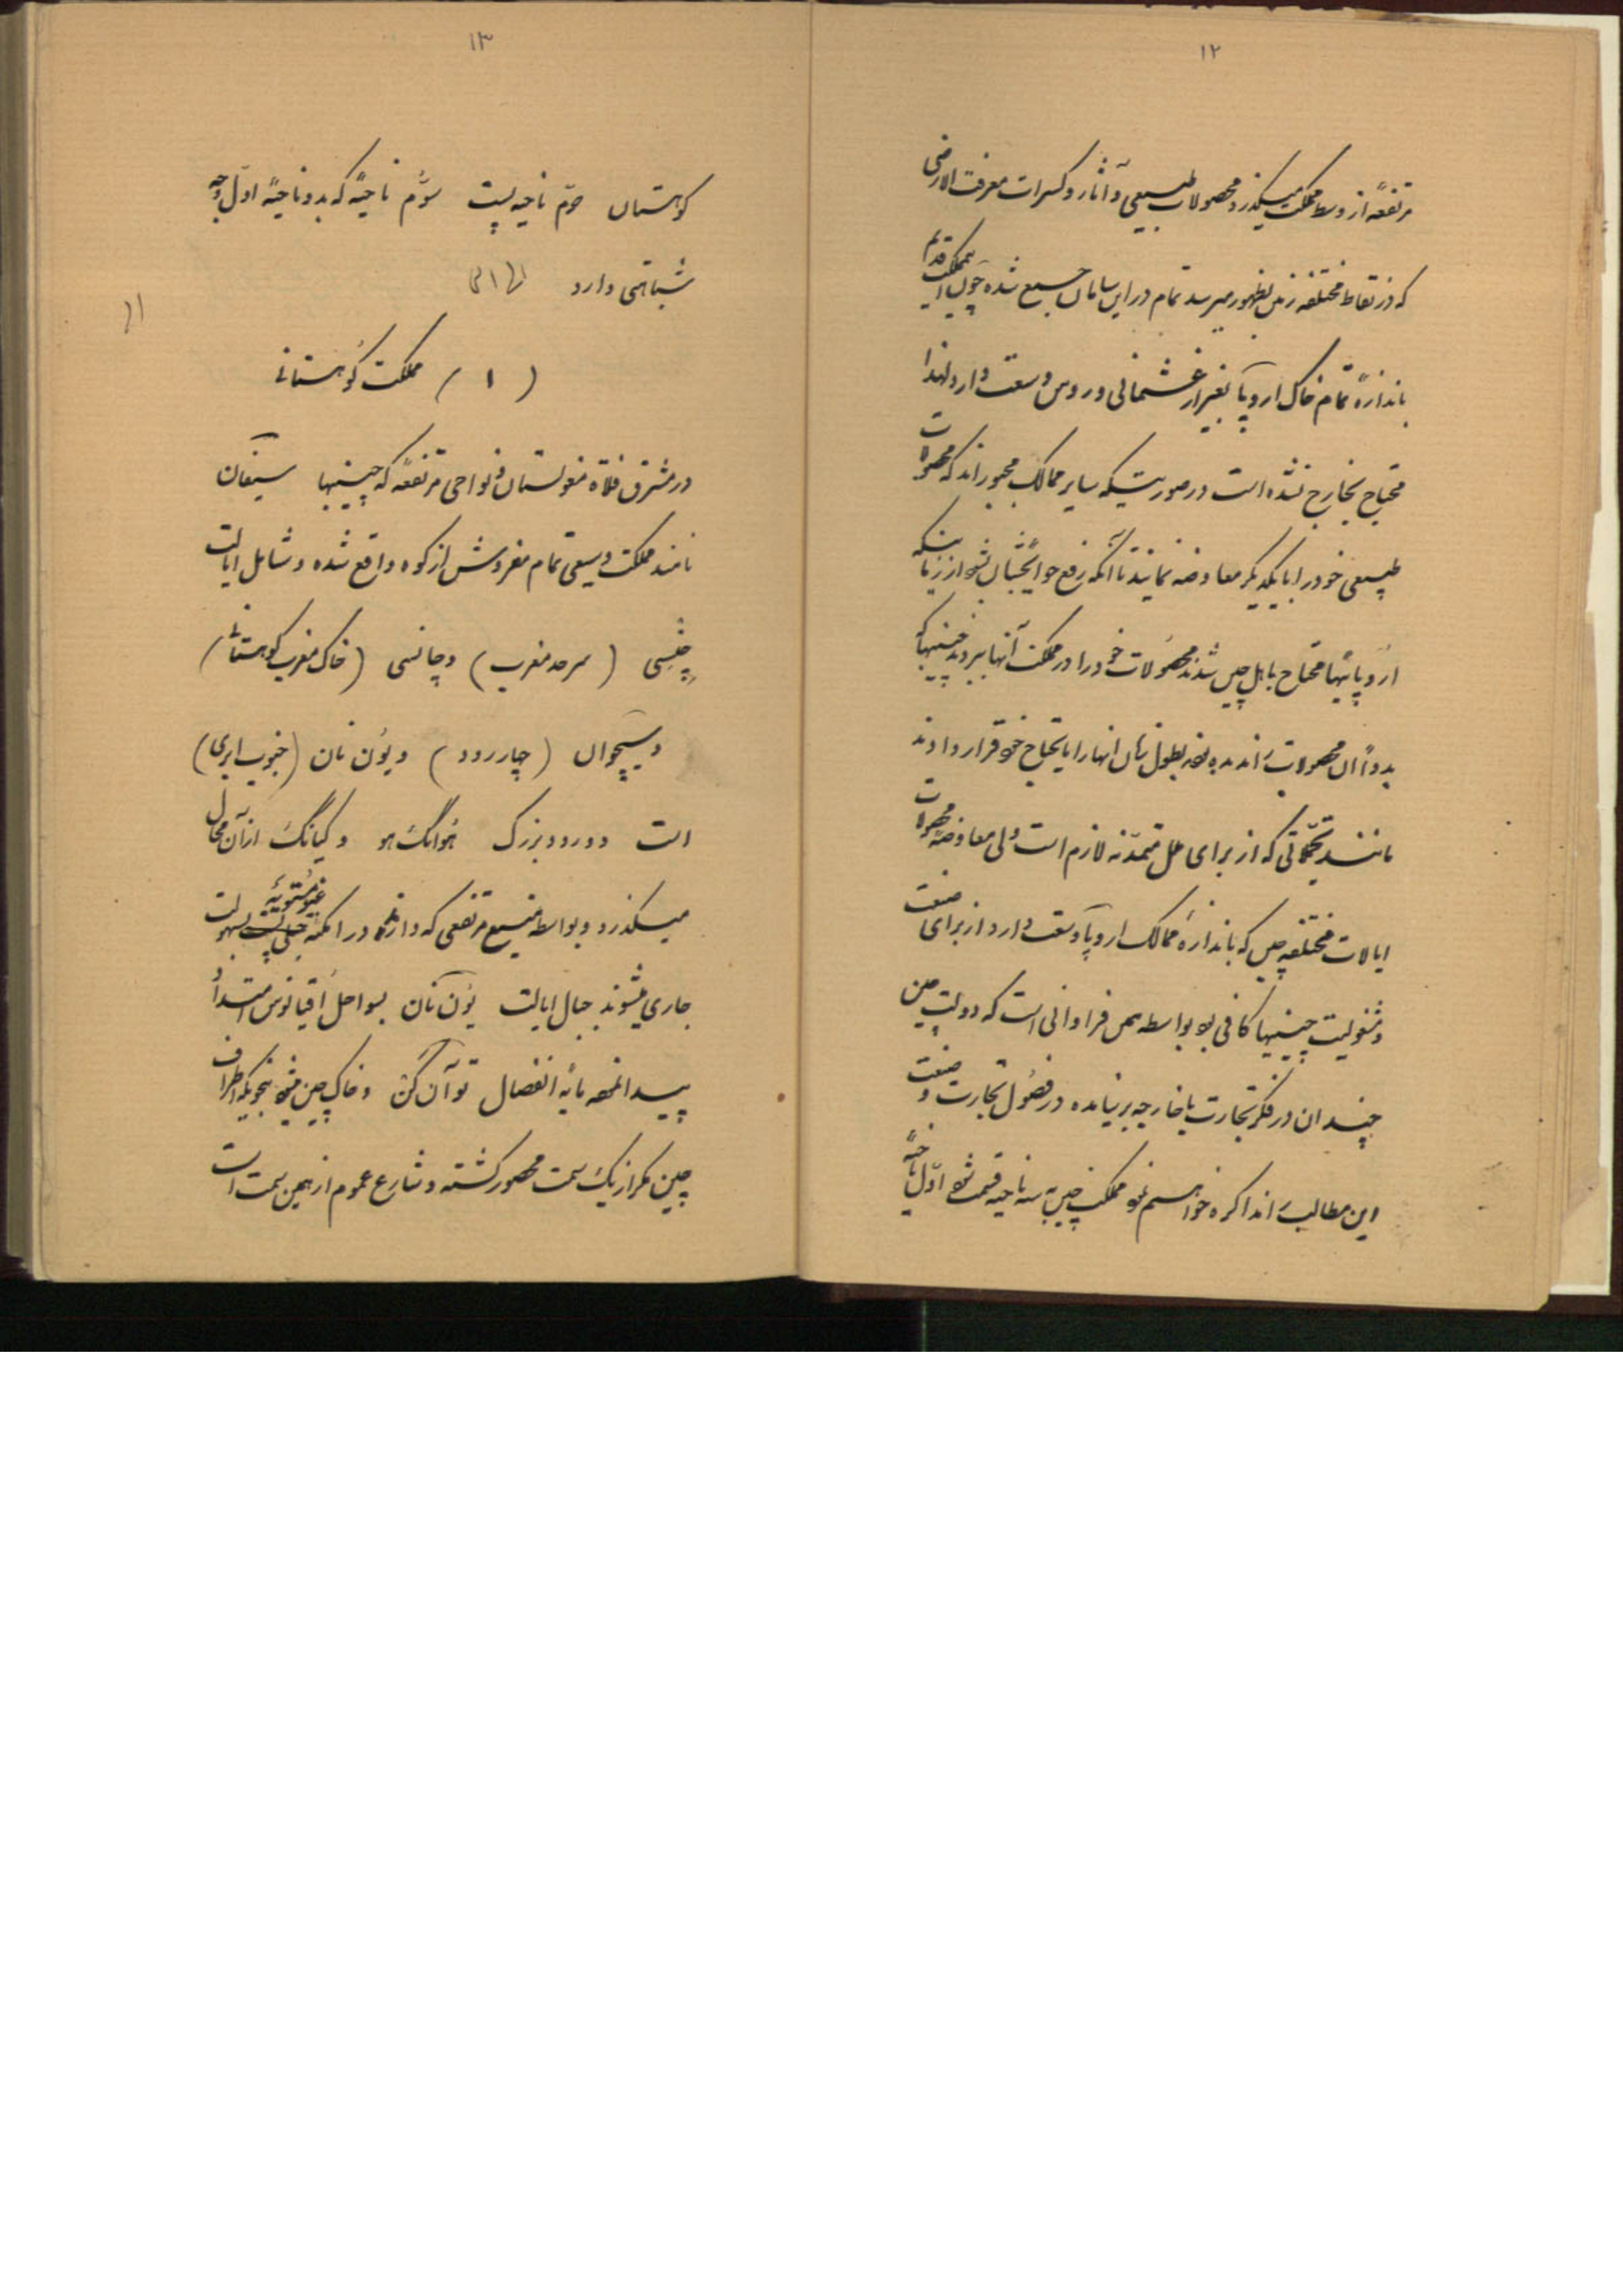 ۱۲
مرتفعهٔ از وسط مملکت میگذرد محصولات طبیعی و آثار و کسرات معرفت الارضی
که در نقاط مختلفه زمین بظهور میرسد تمام در این سامان جمیع شده چون این مملکت قدیم
باندازهٔ تمام خاک اروپا بغیر از عثمانی و روس وسعت دارد لهذا
محتاج بخارج نشده است در صورتیکه سایر ممالک مجبوراند که محصولات
طبیعی خود را با یکدیگر معاوضه نمایند تا آنکه رفع حوایجشان بشود از زمانیکه
اروپائیها محتاج باهل چین شدند محصولات خود را در مملکت آنها بردند چینیها که
بدواً آن محصولات را ندیده بطول زمان آنها را مایحتاج خود قرار دادند
مانند تجملاتی که از برای ملل متمدنه لازم است ولی معاوضهٔ محصولات
ایالات مختلفه چین که باندازهٔ ممالک اروپا وسعت دارد از برای صنعت
و مشغولیت چینیها کافی بود بواسطه همین فراوانی است که دولت چین
چندان در فکر تجارت با خارجه بر نیامده در فصول تجارت و صنعت
این مطالب را مذاکره خواهیم نمود مملکت چین به سه ناحیه قسمت شود اوّل ناحیهٔ
۱۳
کوهستان دوّم ناحیه پست سوّم ناحیهٔ که بدو ناحیهٔ اوّل بوجه
شباهتی دارد
(۱) مملکت کوهستانی
در مشرق فلاة مغولستان و نواحی مرتفعه که چینیها سیفان
نامند مملکت وسیعی تمام مفروش از کوه واقع شده و شامل ایالت
چنسی (سرحد مغرب) و چانسی (خاک مغرب کوهستان)
و سیچوان (چار رود) و یون نان (جنوب ابری)
است دو رود بزرگ هوانگ هو و کیانگ از آن محال
میگذرد و بواسطه منبع مرتفعی که دارند در امکنه جبلی پست غیر مستویه بسهولت
جاری میشوند جبال ایالت یون نان بسواحل اقیانوس امتداد
پیدا نموده مایهٔ انفصال توآن کن و خاک چین میشود بنحویکه اطراف
چین مکرر از یک سمت محصور گشته و شارع عموم از همین سمت است